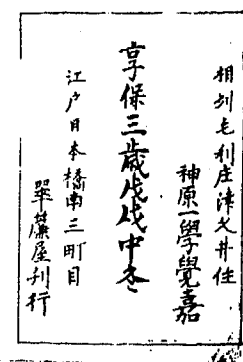 相州毛利庄津久井住
神原一學覺嘉
享保三歳戊戌中冬
江戸日本橋南三町目
翠簾屋刊行